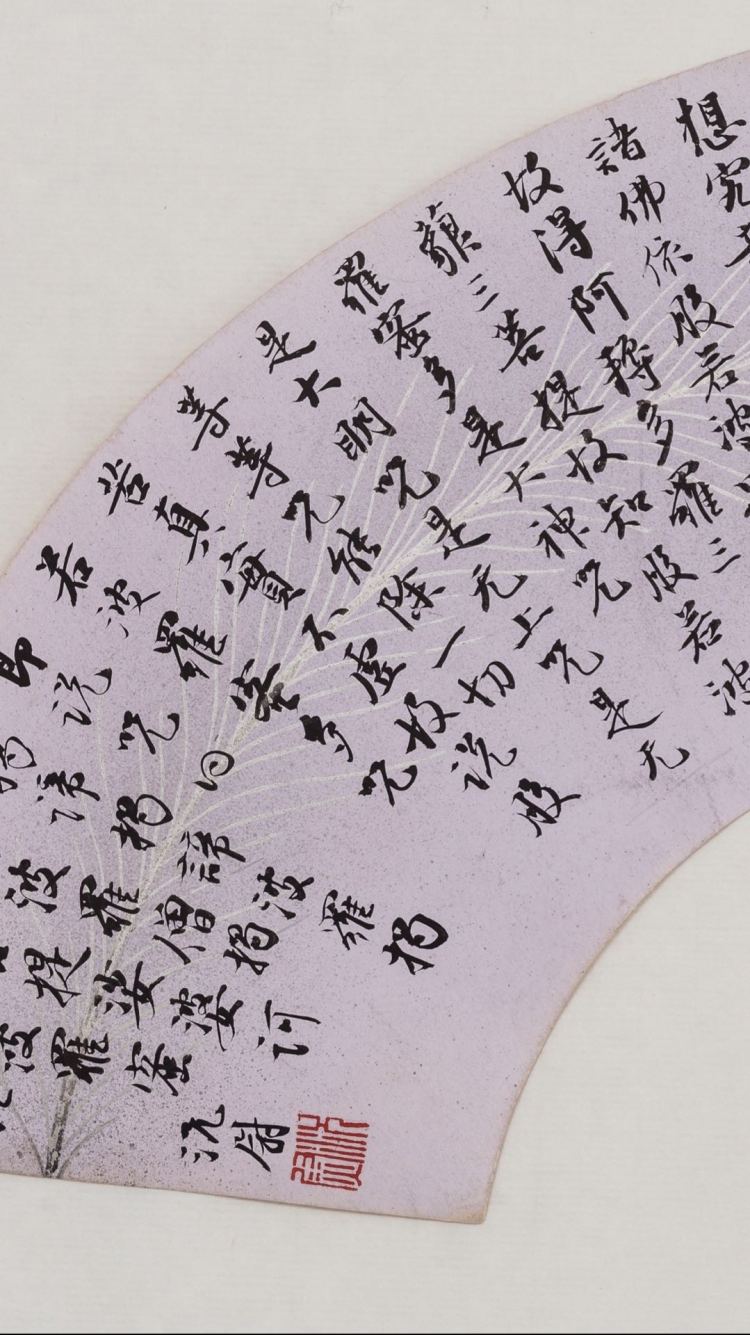 想究
諸佛依般若波
故得阿耨多羅三
藐三菩提故知般若波
羅蜜多是大神咒
是大明咒是无上咒是无
等等咒能除一切
苦真實不虛故說般
若波羅蜜多咒
即說咒曰
揭諦揭諦波羅揭
波羅僧揭
提娑婆訶
波羅蜜
沅叔